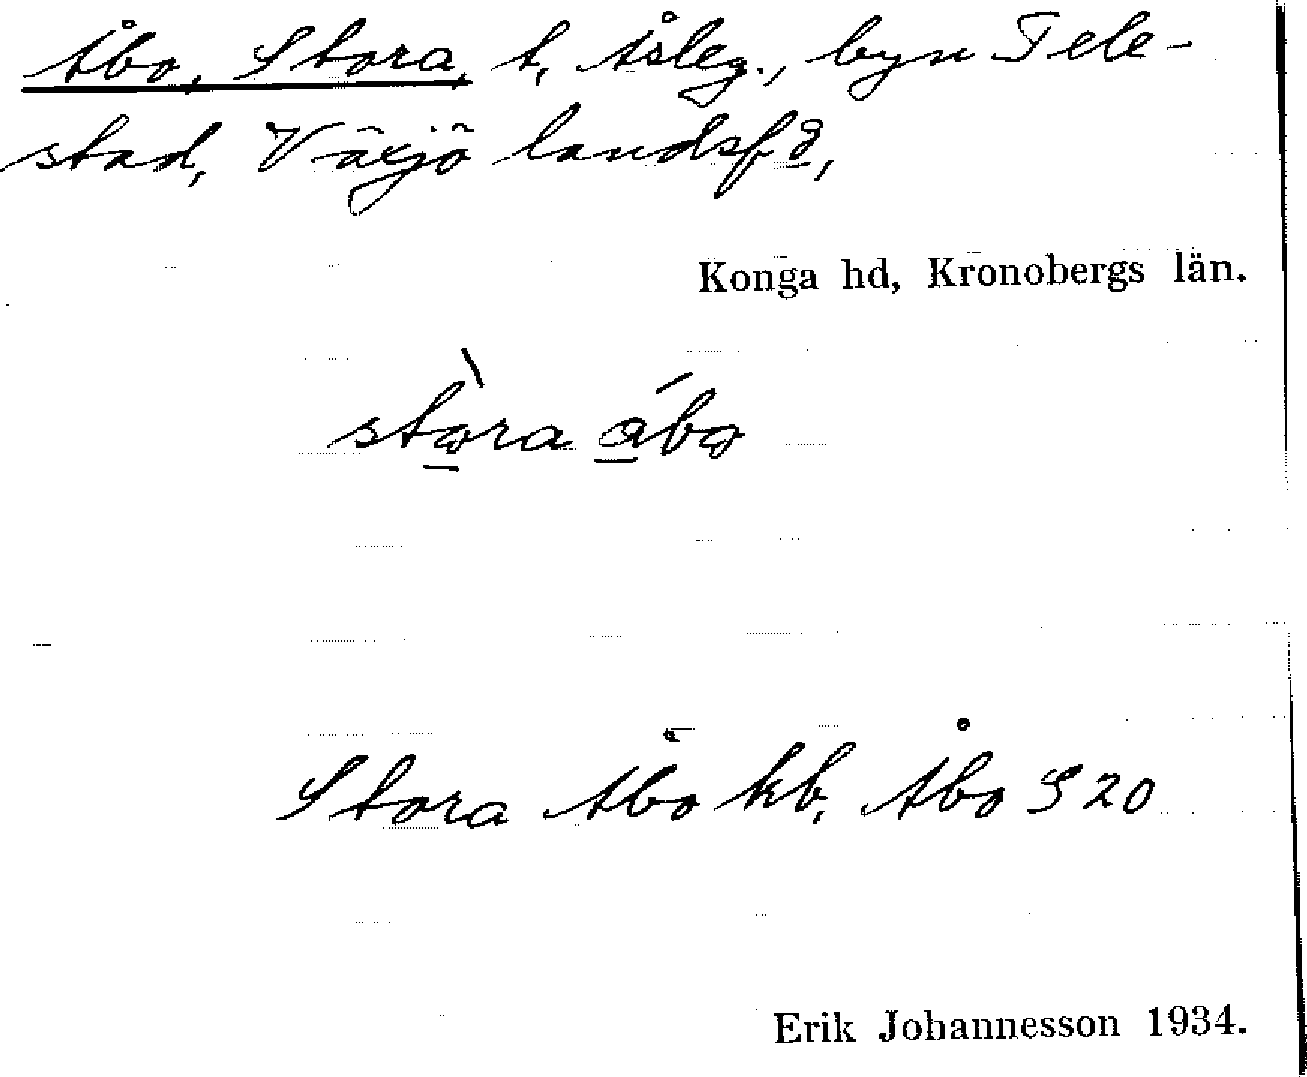 Åbo, Stora, t, åsleg., byn Tele-
stad, Växjö landsf.,
Konga hd, Kronobergs län.
stòra åbo
Stora Åbo kb, Åbo S 20
Erik Johannesson 1934.